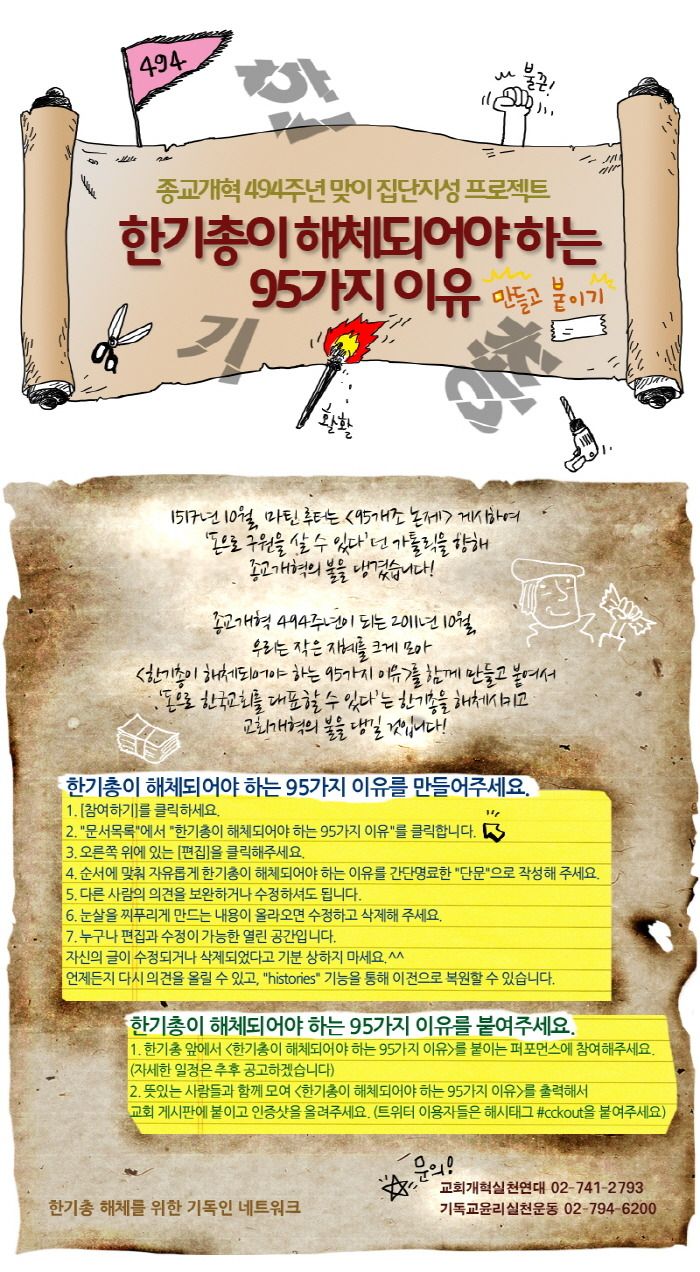 494
한
불끈!
종교개혁 494주년 맞이 집단지성 프로젝트
한기총이 해체되어야 하는
95가지 이유 만들고 붙이기
기
총
활활
1517년 10월, 마틴 루터는 <95개조 논제> 게시하여
'돈으로 구원을 살 수 있다'던 가톨릭을 향해
종교개혁의 불을 댕겼습니다!
종교개혁 494주년이 되는 2011년 10월,
우리는 작은 지혜를 크게 모아
<한기총이 해체되어야 하는 95가지 이유>를 함께 만들고 붙여서
'돈으로 한국교회를 대표할 수 있다'는 한기총을 해체시키고
교회개혁의 불을 댕길 것입니다!
한기총이 해체되어야 하는 95가지 이유를 만들어주세요.
1. [참여하기]를 클릭하세요.
2. "문서목록"에서 "한기총이 해체되어야 하는 95가지 이유"를 클릭합니다.
3. 오른쪽 위에 있는 [편집]을 클릭해주세요.
4. 순서에 맞춰 자유롭게 한기총이 해체되어야 하는 이유를 간단명료한 "단문"으로 작성해 주세요.
5. 다른 사람의 의견을 보완하거나 수정하셔도 됩니다.
6. 눈살을 찌푸리게 만드는 내용이 올라오면 수정하고 삭제해 주세요.
7. 누구나 편집과 수정이 가능한 열린 공간입니다.
자신의 글이 수정되거나 삭제되었다고 기분 상하지 마세요.^^
언제든지 다시 의견을 올릴 수 있고, "histories" 기능을 통해 이전으로 복원할 수 있습니다.
한기총이 해체되어야 하는 95가지 이유를 붙여주세요.
1. 한기총 앞에서 <한기총이 해체되어야 하는 95가지 이유>를 붙이는 퍼포먼스에 참여해주세요.
(자세한 일정은 추후 공고하겠습니다)
2. 뜻있는 사람들과 함께 모여 <한기총이 해체되어야 하는 95가지 이유>를 출력해서
교회 게시판에 붙이고 인증샷을 올려주세요. (트위터 이용자들은 해시태그 #cckout을 붙여주세요)
문의!
교회개혁실천연대 02-741-2793
한기총 해체를 위한 기독인 네트워크
기독교윤리실천운동 02-794-6200